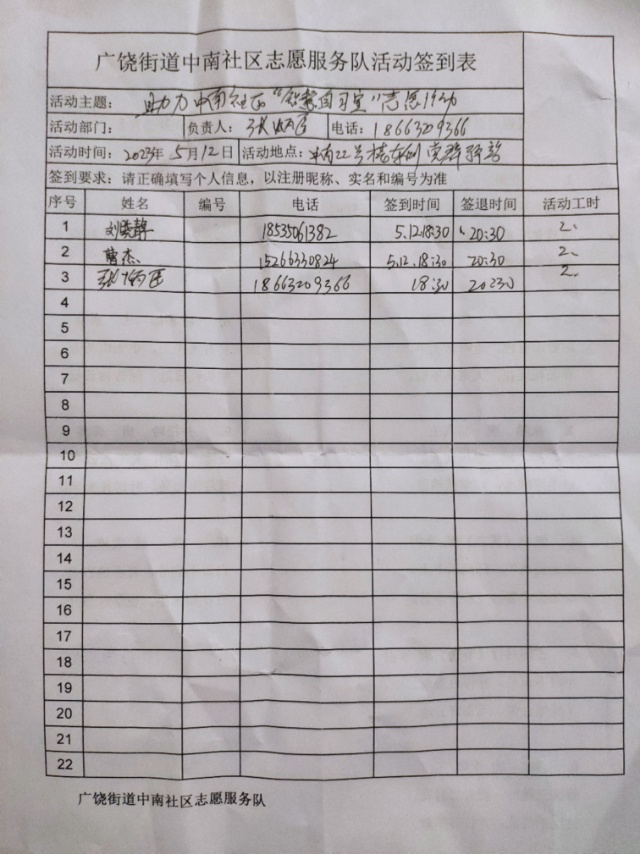 广饶街道中南社区志愿服务队活动签到表
活动主题: 助力中南社区“智慧自习室”志愿活动
活动部门: 负责人: 张炳臣 电话: 18663209366
活动时间: 2023年5月12日 活动地点: 中南22号楼东侧党群驿站
签到要求: 请正确填写个人信息，以注册昵称、实名和编号为准
序号 姓名 编号 电话 签到时间 签退时间 活动工时
1 刘 静 18535061382 5.12.18:30 20:30 2.
2 曹杰 15266330824 5.12.18:30 20:30 2.
3 张炳臣 18663209366 18:30 20230 2.
4
5
6
7
8
9
10
11
12
13
14
15
16
17
18
19
20
21
22
广饶街道中南社区志愿服务队